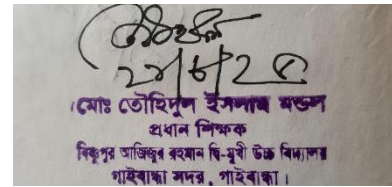 মোঃ তৌহিদুল ইসলাম মন্ডল
প্রধান শিক্ষক
বিষ্ণুপুর আজিজুর রহমান দ্বি-মুখী উচ্চ বিদ্যালয়
গাইবান্ধা সদর, গাইবান্ধা।